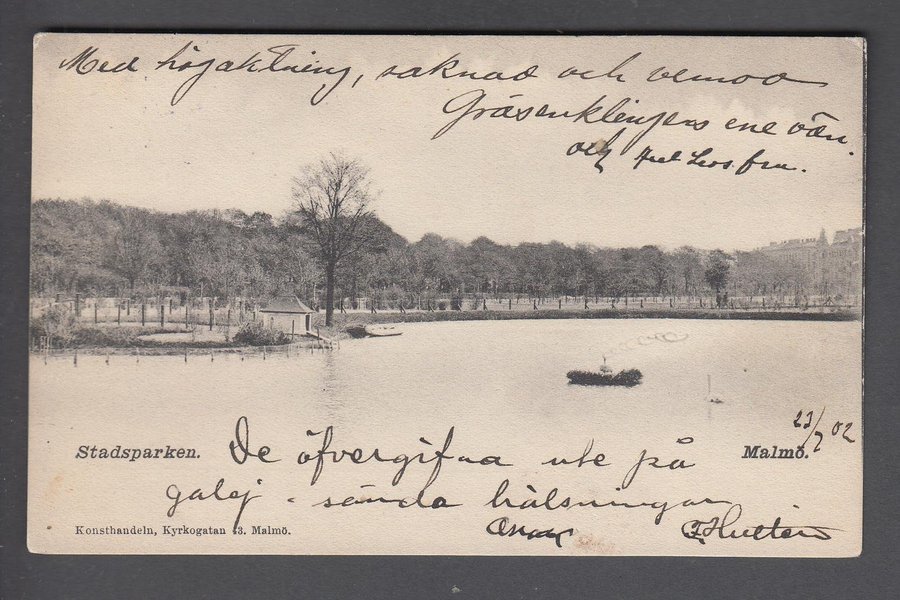 Med högaktning, saknad och vemod
Gräsenklingens ene vän.
och fru.
Stadsparken.
De öfvergifna ute på
Malmö.
23/7 02
galej - sända hälsningar
Oscar F. Hultén
Konsthandeln, Kyrkogatan 43. Malmö.